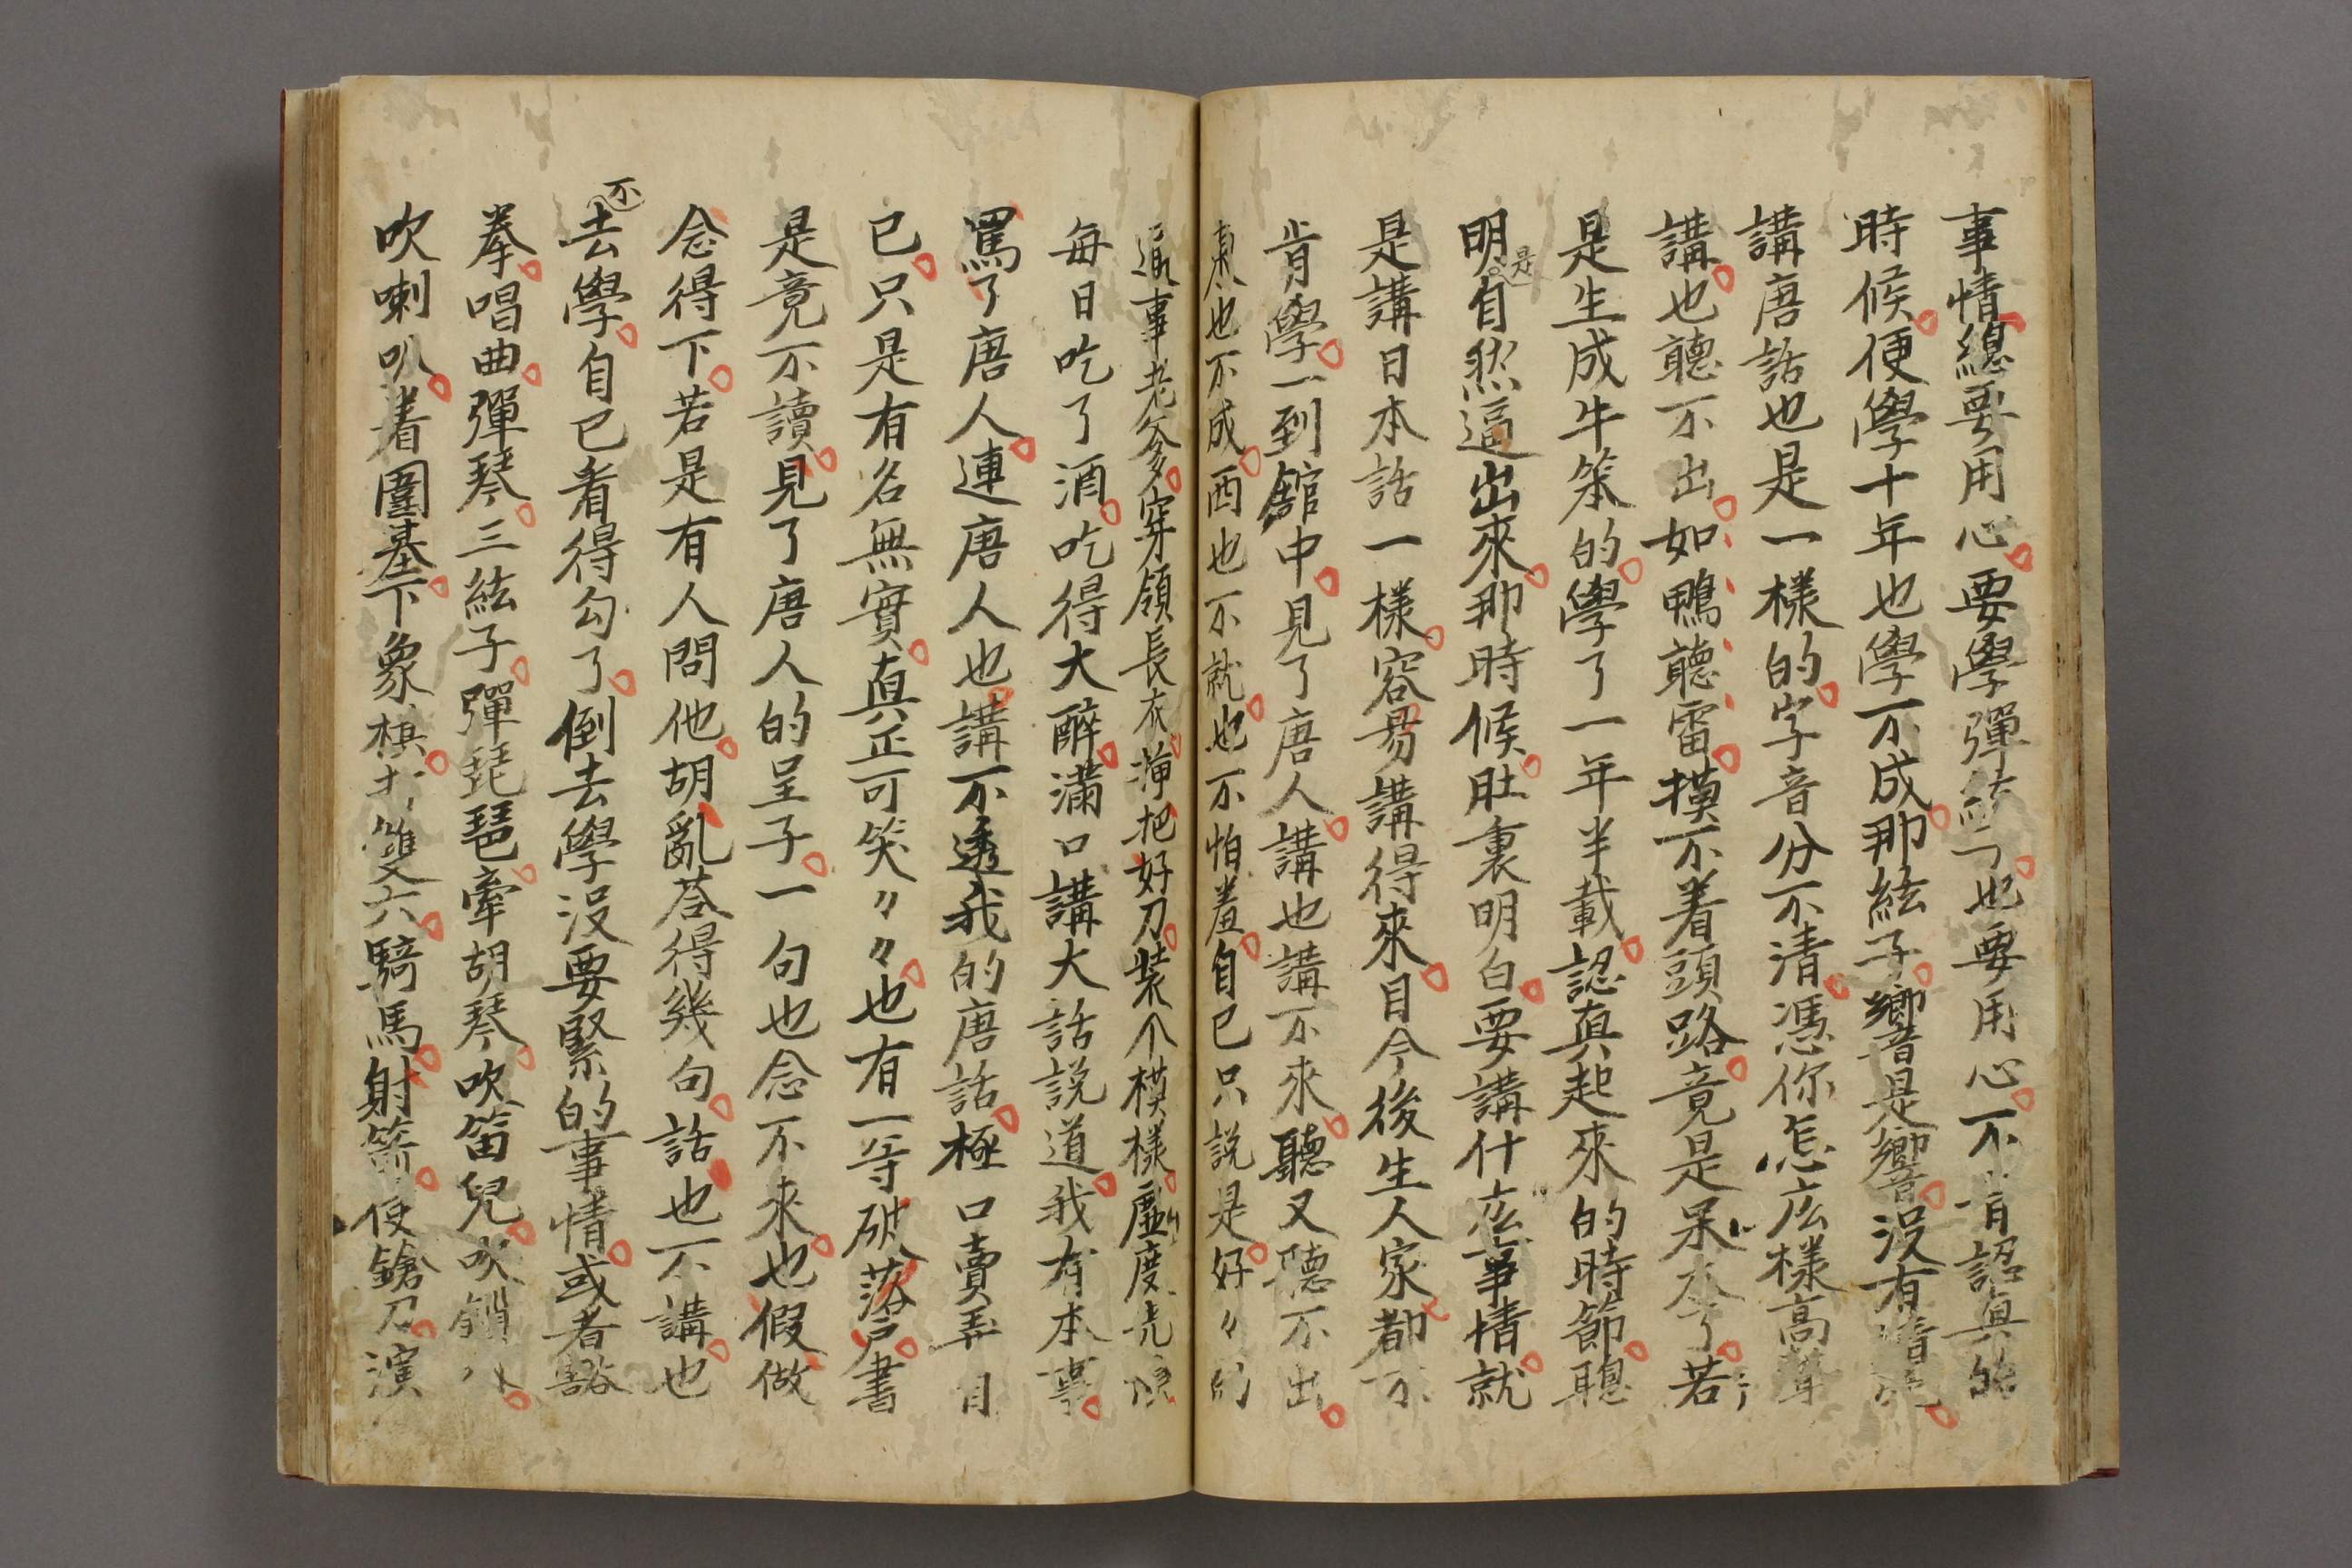 事情總要用心要學彈絃子也要用心不肯認真的
時候便學十年也學不成那絃子響是響没有清
講唐話也是一樣的字音分不清憑你怎広樣高聲
講也聽不出如鴨聽雷摸不着頭路竟是呆夲了若
是生成牛笨的學了一年半載認真起來的時節聰
明是自然逼出來那時候肚裏明白要講什広事情就
是講日本話一樣容易講得來目今後生人家都不
肯學一到舘中見了唐人講也講不來聽又聽不出
東也不成西也不就也不怕羞自已只説是好々的
通事老爹穿領長衣
把好刀装个模樣虛度光陰
每日吃了酒吃得大醉滿口講大話説道我有本事
罵了唐人連唐人也講不透我的唐話極口賣弄自
已只是有名無實真正可笑々々也有一等破落戸書
是竟不讀見了唐人的呈子一句也念不來也假做
念得下若是有人問他胡亂荅得幾句話也不講也
不去學自已看得勾了倒去學没要緊的事情或者豁
拳唱曲彈琴三絃子彈琵琶牽胡琴吹笛兒吹鎖
吹喇叭着圍碁下象棋打雙六騎馬射箭使鎗刀演